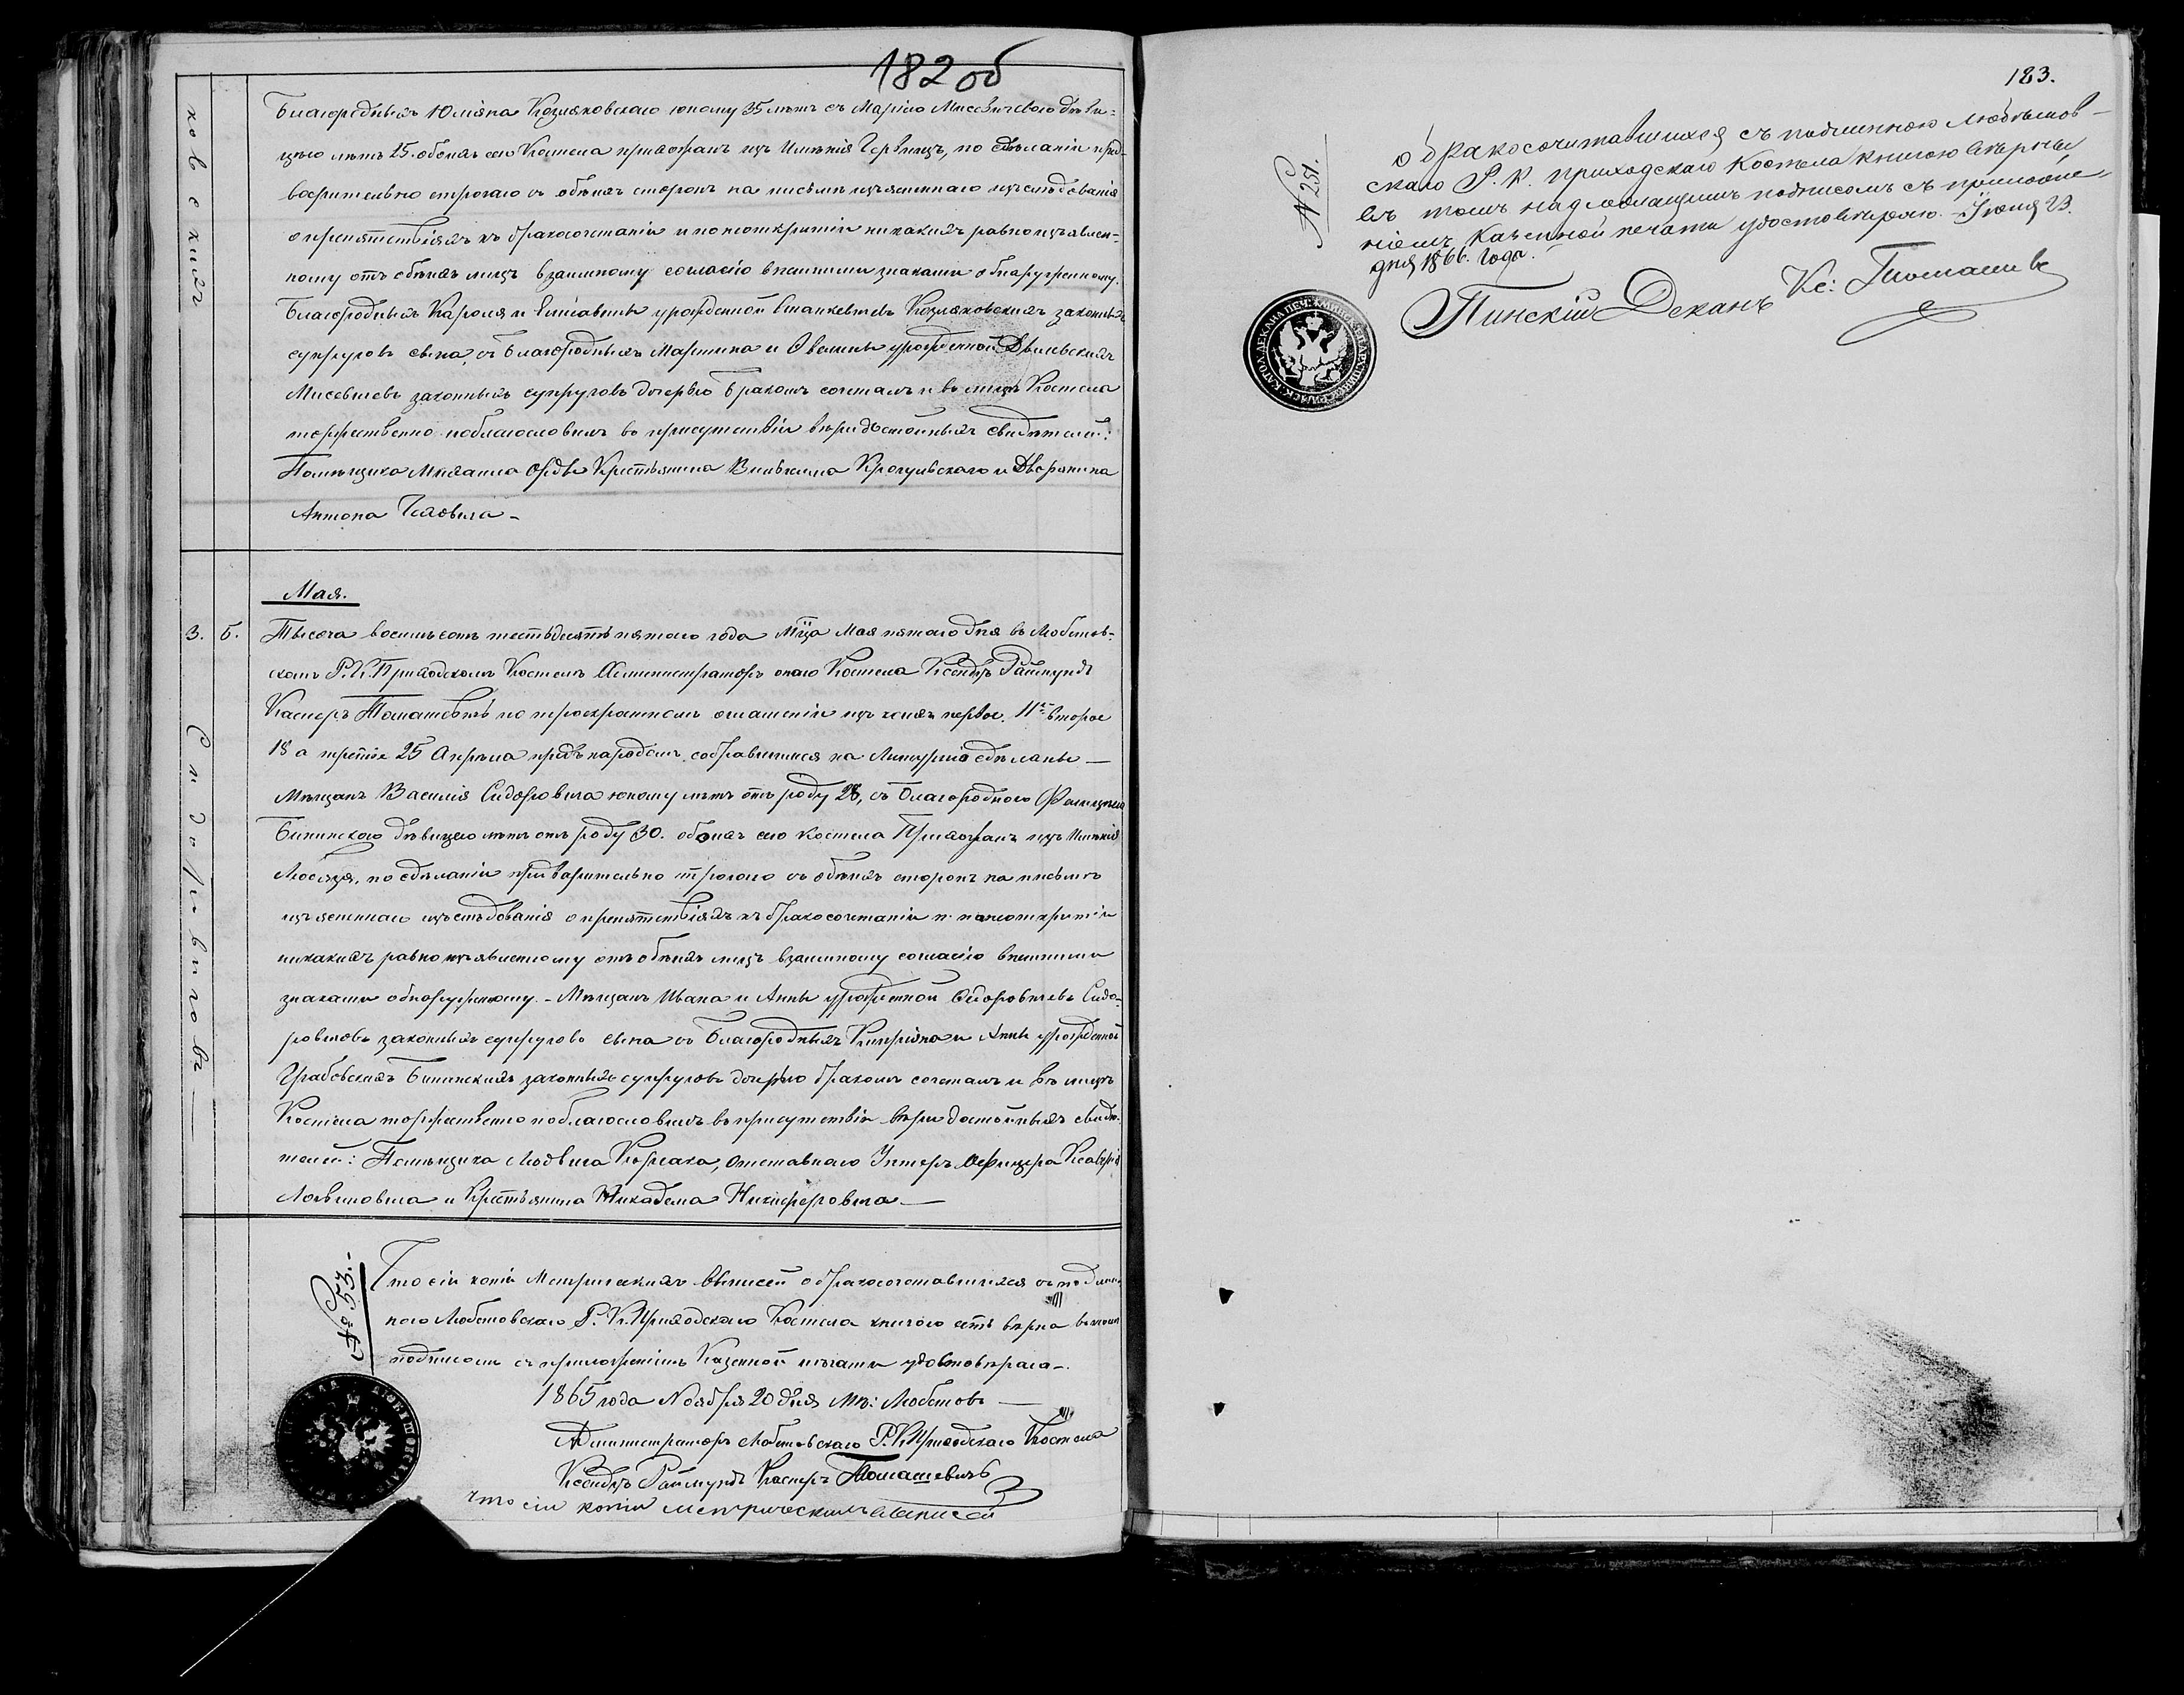 182 об
ковскихъ
Благородныхъ Юліяна Козляковскаго юношу 35 лѣтъ съ Маріею Мисевичевою дѣви-
цею лѣтъ 25. обоихъ сего Костела прихожанъ изъ Имѣнія, по сдѣланіи пред-
варительно строгаго съ обѣихъ сторонъ на письмѣ изъясненнаго изслѣдованія
о препятствіяхъ къ бракосочетанію и по неоткрытіи никакихъ равно изъявлен-
ному отъ обѣихъ лицъ взаимному согласію внешними знаками обнаруженному.
Благородныхъ Кароля и Елисаветы урожденной Станкевичевъ Козляковскихъ законныхъ
супруговъ сына, съ Благородныхъ Мартина и Эвелины урожденной
Мисевичевъ законныхъ супруговъ дочерью бракомъ сочеталъ и въ лицѣ Костела
торжественно поблагословилъ въ присутствіи вѣридостойныхъ свидѣтелей:
Помѣщика Михаила Орды Крестьянина Викентія и Дворянина
Антона
Мая.
3. 5. Тысяча восемьсотъ шестьдесятъ пятаго года Мца Мая пятаго дня въ Любешов-
скомъ Р. К. Приходскомъ Костелѣ Администраторъ онаго Костела Ксендзъ Раймундъ
Касперъ Томашевичъ по троекратномъ оглашеніи изъ коихъ первое 11го второе
18 а третіе 25 Апрѣля предъ народомъ собравшимся на Литургію сдѣланы —
Сидоровичовъ —
Мѣщанъ Василія Сидоровича юношу лѣтъ отъ роду 28, съ Благородною Фелиціею
Бининскою дѣвицею лѣтъ отъ роду 30. обоихъ сего костела Прихожанъ изъ Имѣнія
Любязя, по сдѣланіи предварительно строгаго съ обѣихъ сторонъ на письмѣ
изъясненнаго изслѣдованія о препятствіяхъ къ бракосочетанію и по неоткрытіи
никакихъ равно изъявленному отъ обѣихъ лицъ взаимному согласію внешними
знаками обнаруженному. - Мѣщанъ Ивана и Анны урожденной Сидоровичевъ Сидо-
ровичовъ законныхъ супруговъ сына съ Благородныхъ Кипріяна и Анны урожденной
Грабовскихъ Бининскихъ законныхъ супруговъ дочерью бракомъ сочеталъ и въ лицѣ
Костела торжественно поблагословилъ въ присутствіи вѣри достойныхъ свидѣ-
телей: Помѣщика Людвига Корсака, Отставнаго Унтеръ Офицера Ксаверія
и Крестьянина Никодема Никифоровича —
№ 53.
Что сіи копіи Метрическихъ выписей о бракосочетавшихся съ подлин-
ною Любешовскаго Р. К. Приходскаго Костела книгою есть вѣрна въ томъ
подписомъ съ приложеніемъ Казенной печати удостовѣряю -.
1865 года Ноября 20 дня Мѣ: Любешовъ —
Администраторъ Любешовскаго Р. К. Приходскаго Костела
Ксендзъ Раймундъ Касперъ Томашевичъ
Что сіи копіи метрическихъ выписей
183.
№ 251.
о бракосочитавшихся съ подлинною Любешов-
скаго Р. К. приходскаго Костела книгою вѣрны,
въ томъ надлежащимъ подписомъ съ приложе-
ніемъ казенной печати удостовѣряю. Іюня 23.
дня 1866. года.
Пинскій Деканъ Кс: Томашеви